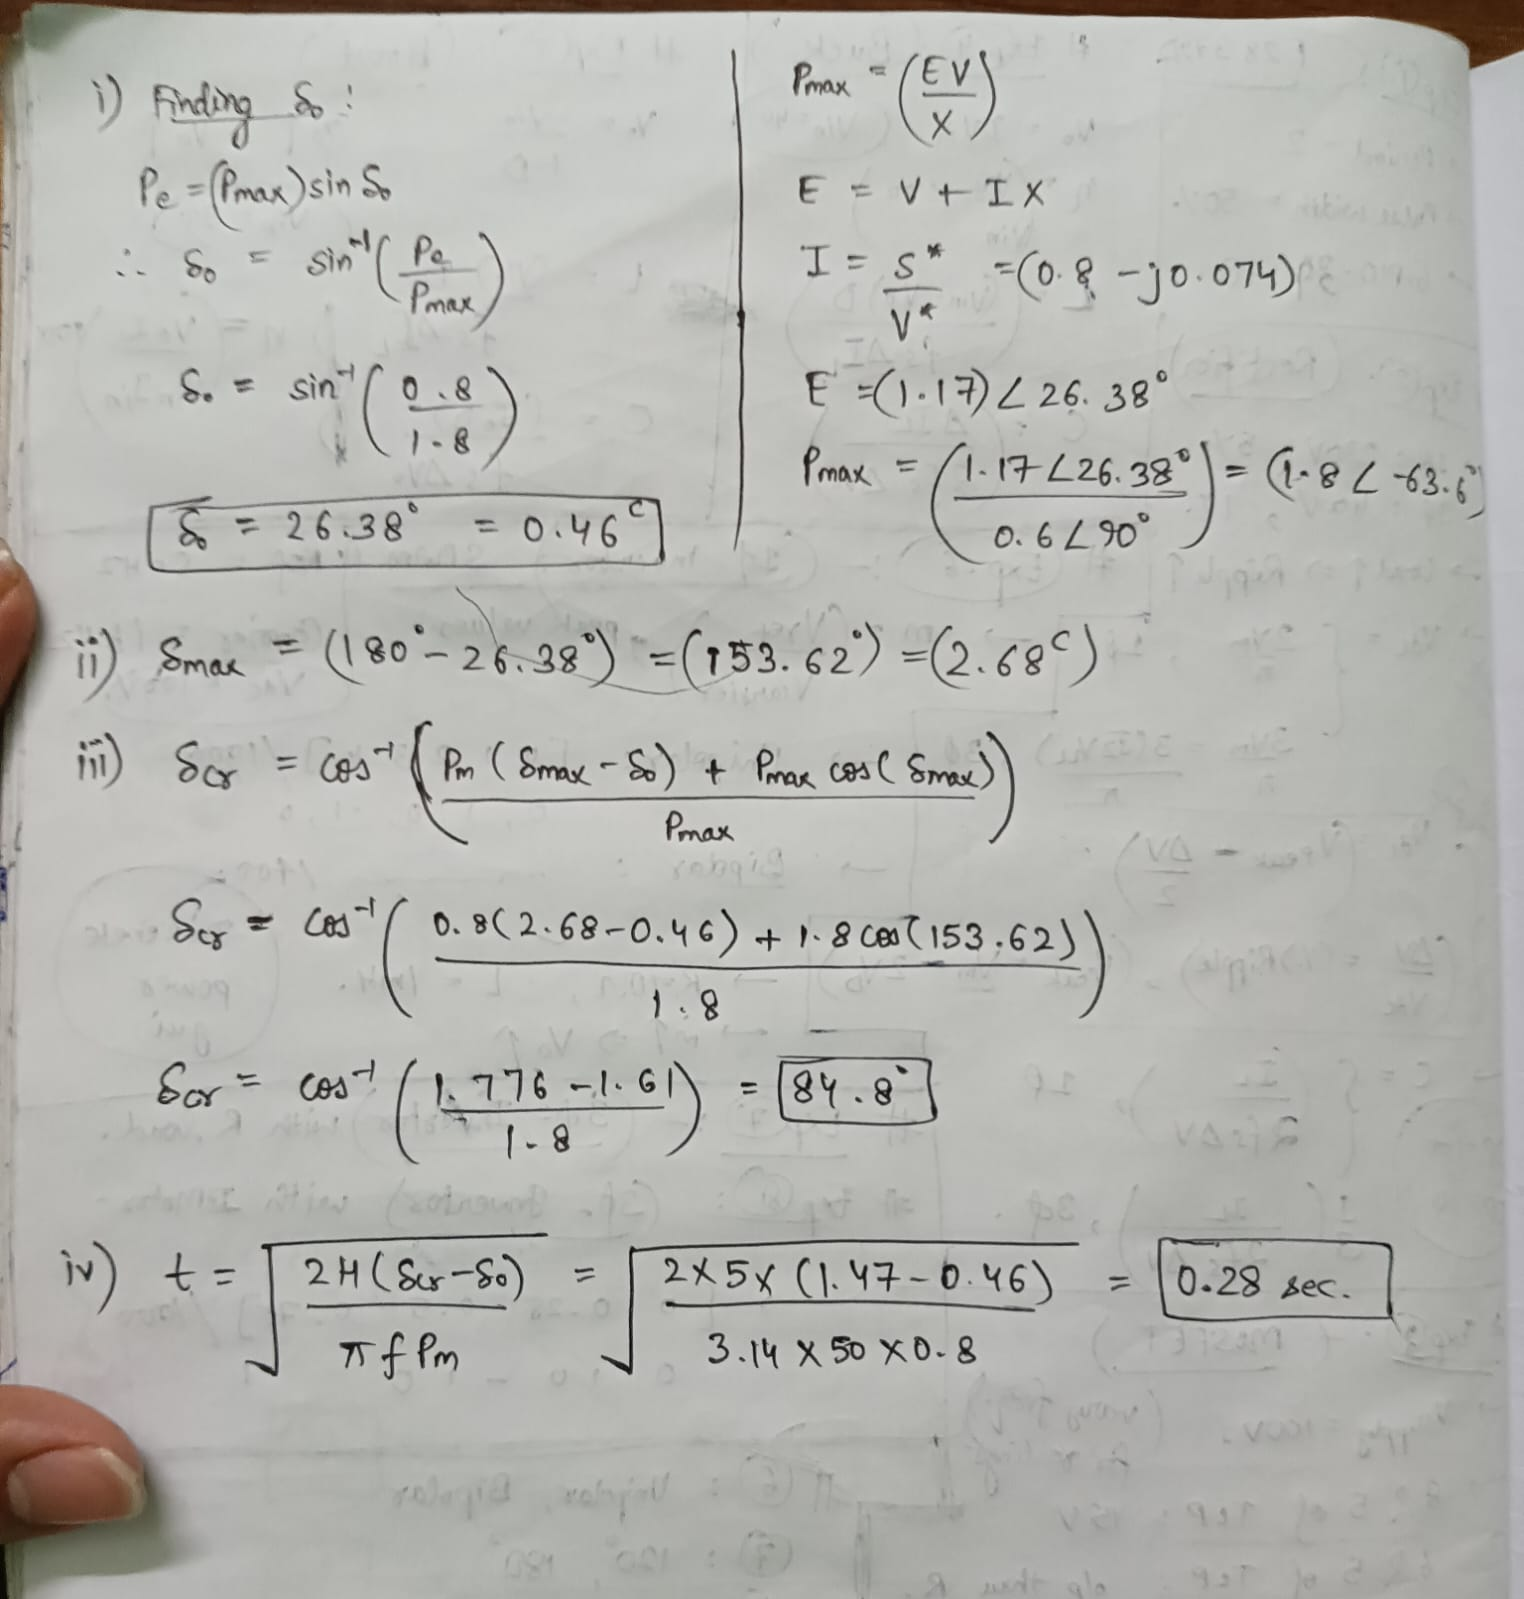 i) Finding δ₀ :
Pe = (Pmax) sin δ₀
∴ δ₀ = sin⁻¹ (Pe / Pmax)
δ₀ = sin⁻¹ (0.8 / 1.8)
δ₀ = 26.38° = 0.46ᶜ
Pmax = (EV / X)
E = V + IX
I = S* / V* = (0.8 - j0.074)
E = (1.17) ∠ 26.38°
Pmax = (1.17 ∠26.38° / 0.6 ∠90°) = (1.8 ∠ -63.6°)
ii) δmax = (180° - 26.38°) = (153.62°) = (2.68ᶜ)
iii) δcr = cos⁻¹ (Pm (δmax - δ₀) + Pmax cos(δmax) / Pmax)
δcr = cos⁻¹ (0.8(2.68-0.46) + 1.8 cos(153.62) / 1.8)
δcr = cos⁻¹ (1.776 - 1.61 / 1.8) = 84.8°
iv) t = √(2H(δcr-δ₀) / πf Pm) = √(2×5×(1.47-0.46) / 3.14 × 50 × 0.8) = 0.28 sec.